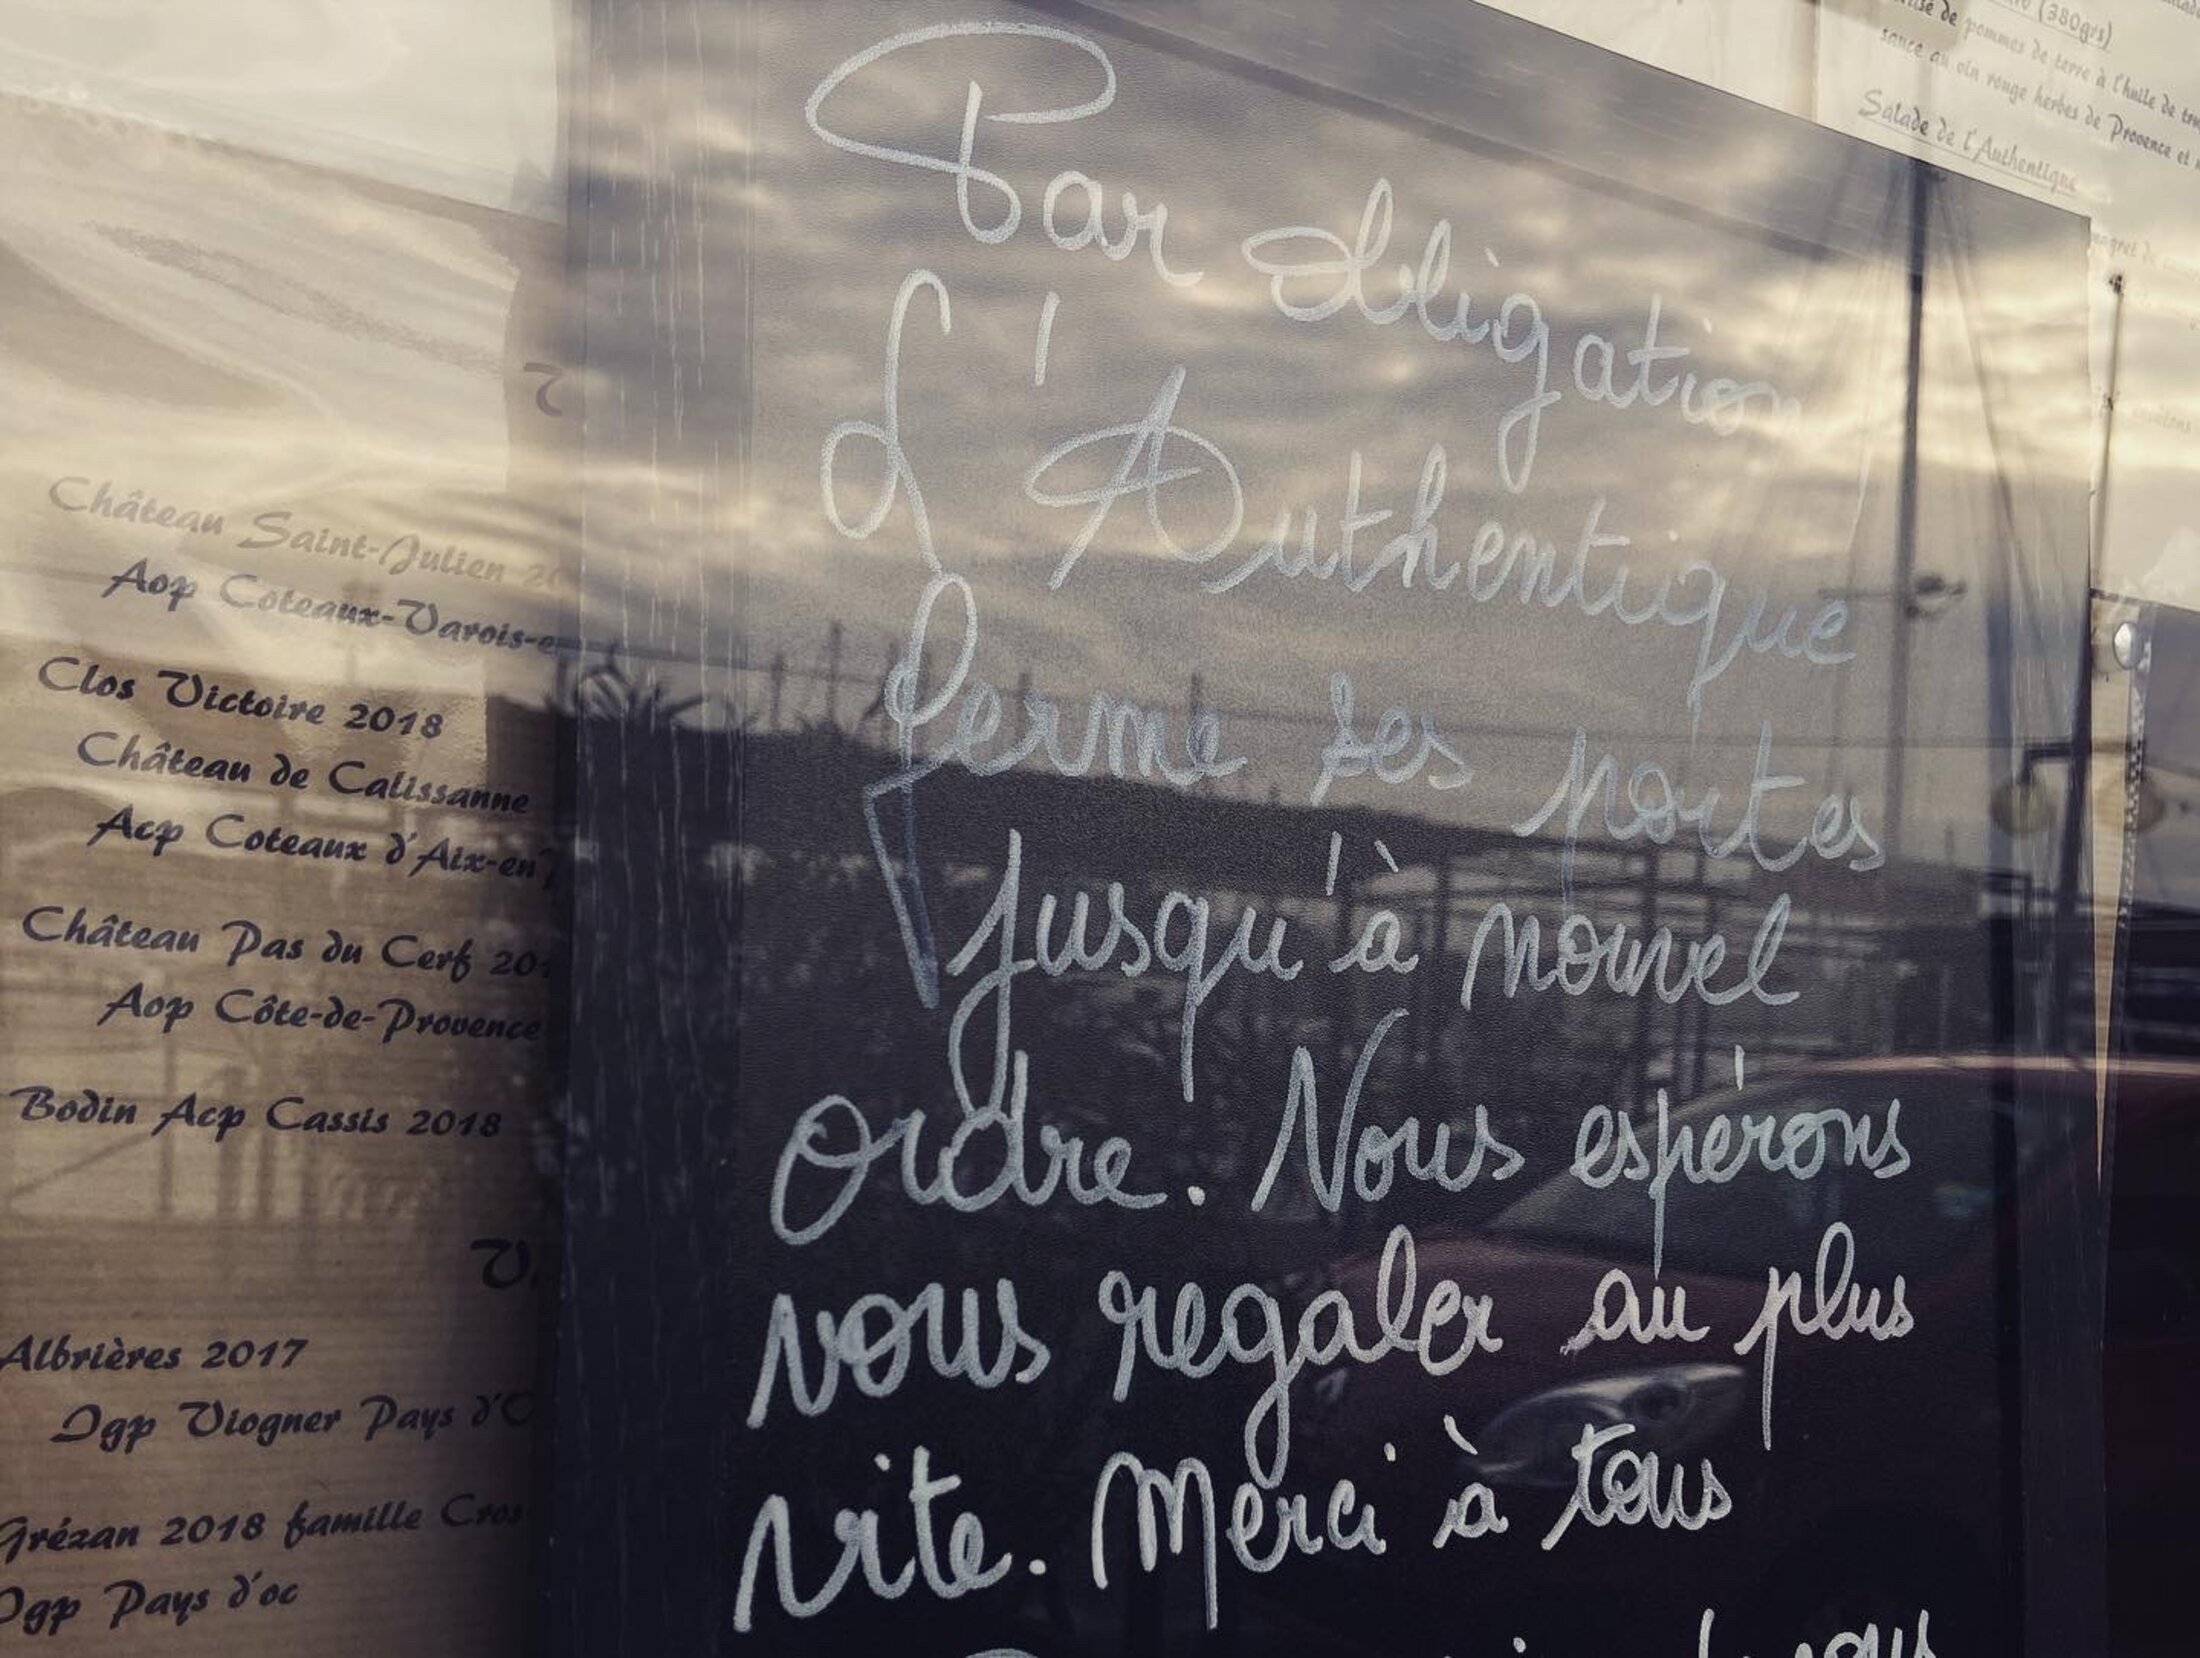 Château Saint-Julien
Aop Coteaux-Varois-e
Clos Victoire 2018
Château de Calissanne
Acp Coteaux d'Aix-en
Château Pas du Cerf 20
Aop Côte-de-Provence
Bodin Acp Cassis 2018
Albrières 2017
Igp Viogner Pays d'O
Grézan 2018 famille Cros
Igp Pays d'oc
Par Obligation
L'Authentique
ferme ses portes
jusqu'à nouvel
ordre. Nous espérons
vous regaler au plus
vite. Merci à tous
(380grs)
de pommes de terre à l'huile de
sauce au vin rouge herbes de Provence et
Salade de l'Authentique
magret de